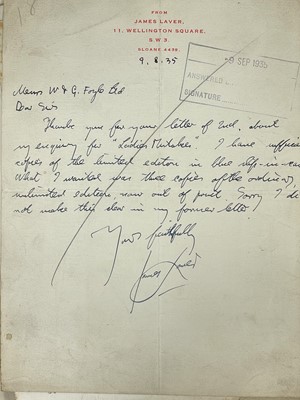 18
FROM
JAMES LAVER,
11, WELLINGTON SQUARE,
S.W.3.
SLOANE 4438.
9 SEP 1935
ANSWERED
SIGNATURE
9. 8. 35
Messrs W & G. Foyle Ltd
Dear Sirs
Thank you for your letter of 2nd, about
my enquiry for "Ladies' Mistakes". I have sufficient
copies of the limited edition in blue slip-in-case
What I wanted was three copies of the ordinary,
unlimited edition, now out of print. Sorry I did
not make this clear in my former letter.
Yours faithfully
James Laver